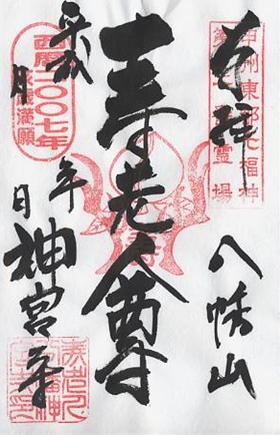 奉拝
八幡山
甲州東郡七福神
霊場
寿老人尊
平成
年
月
日
西暦二〇〇七年
満願
神宮寺